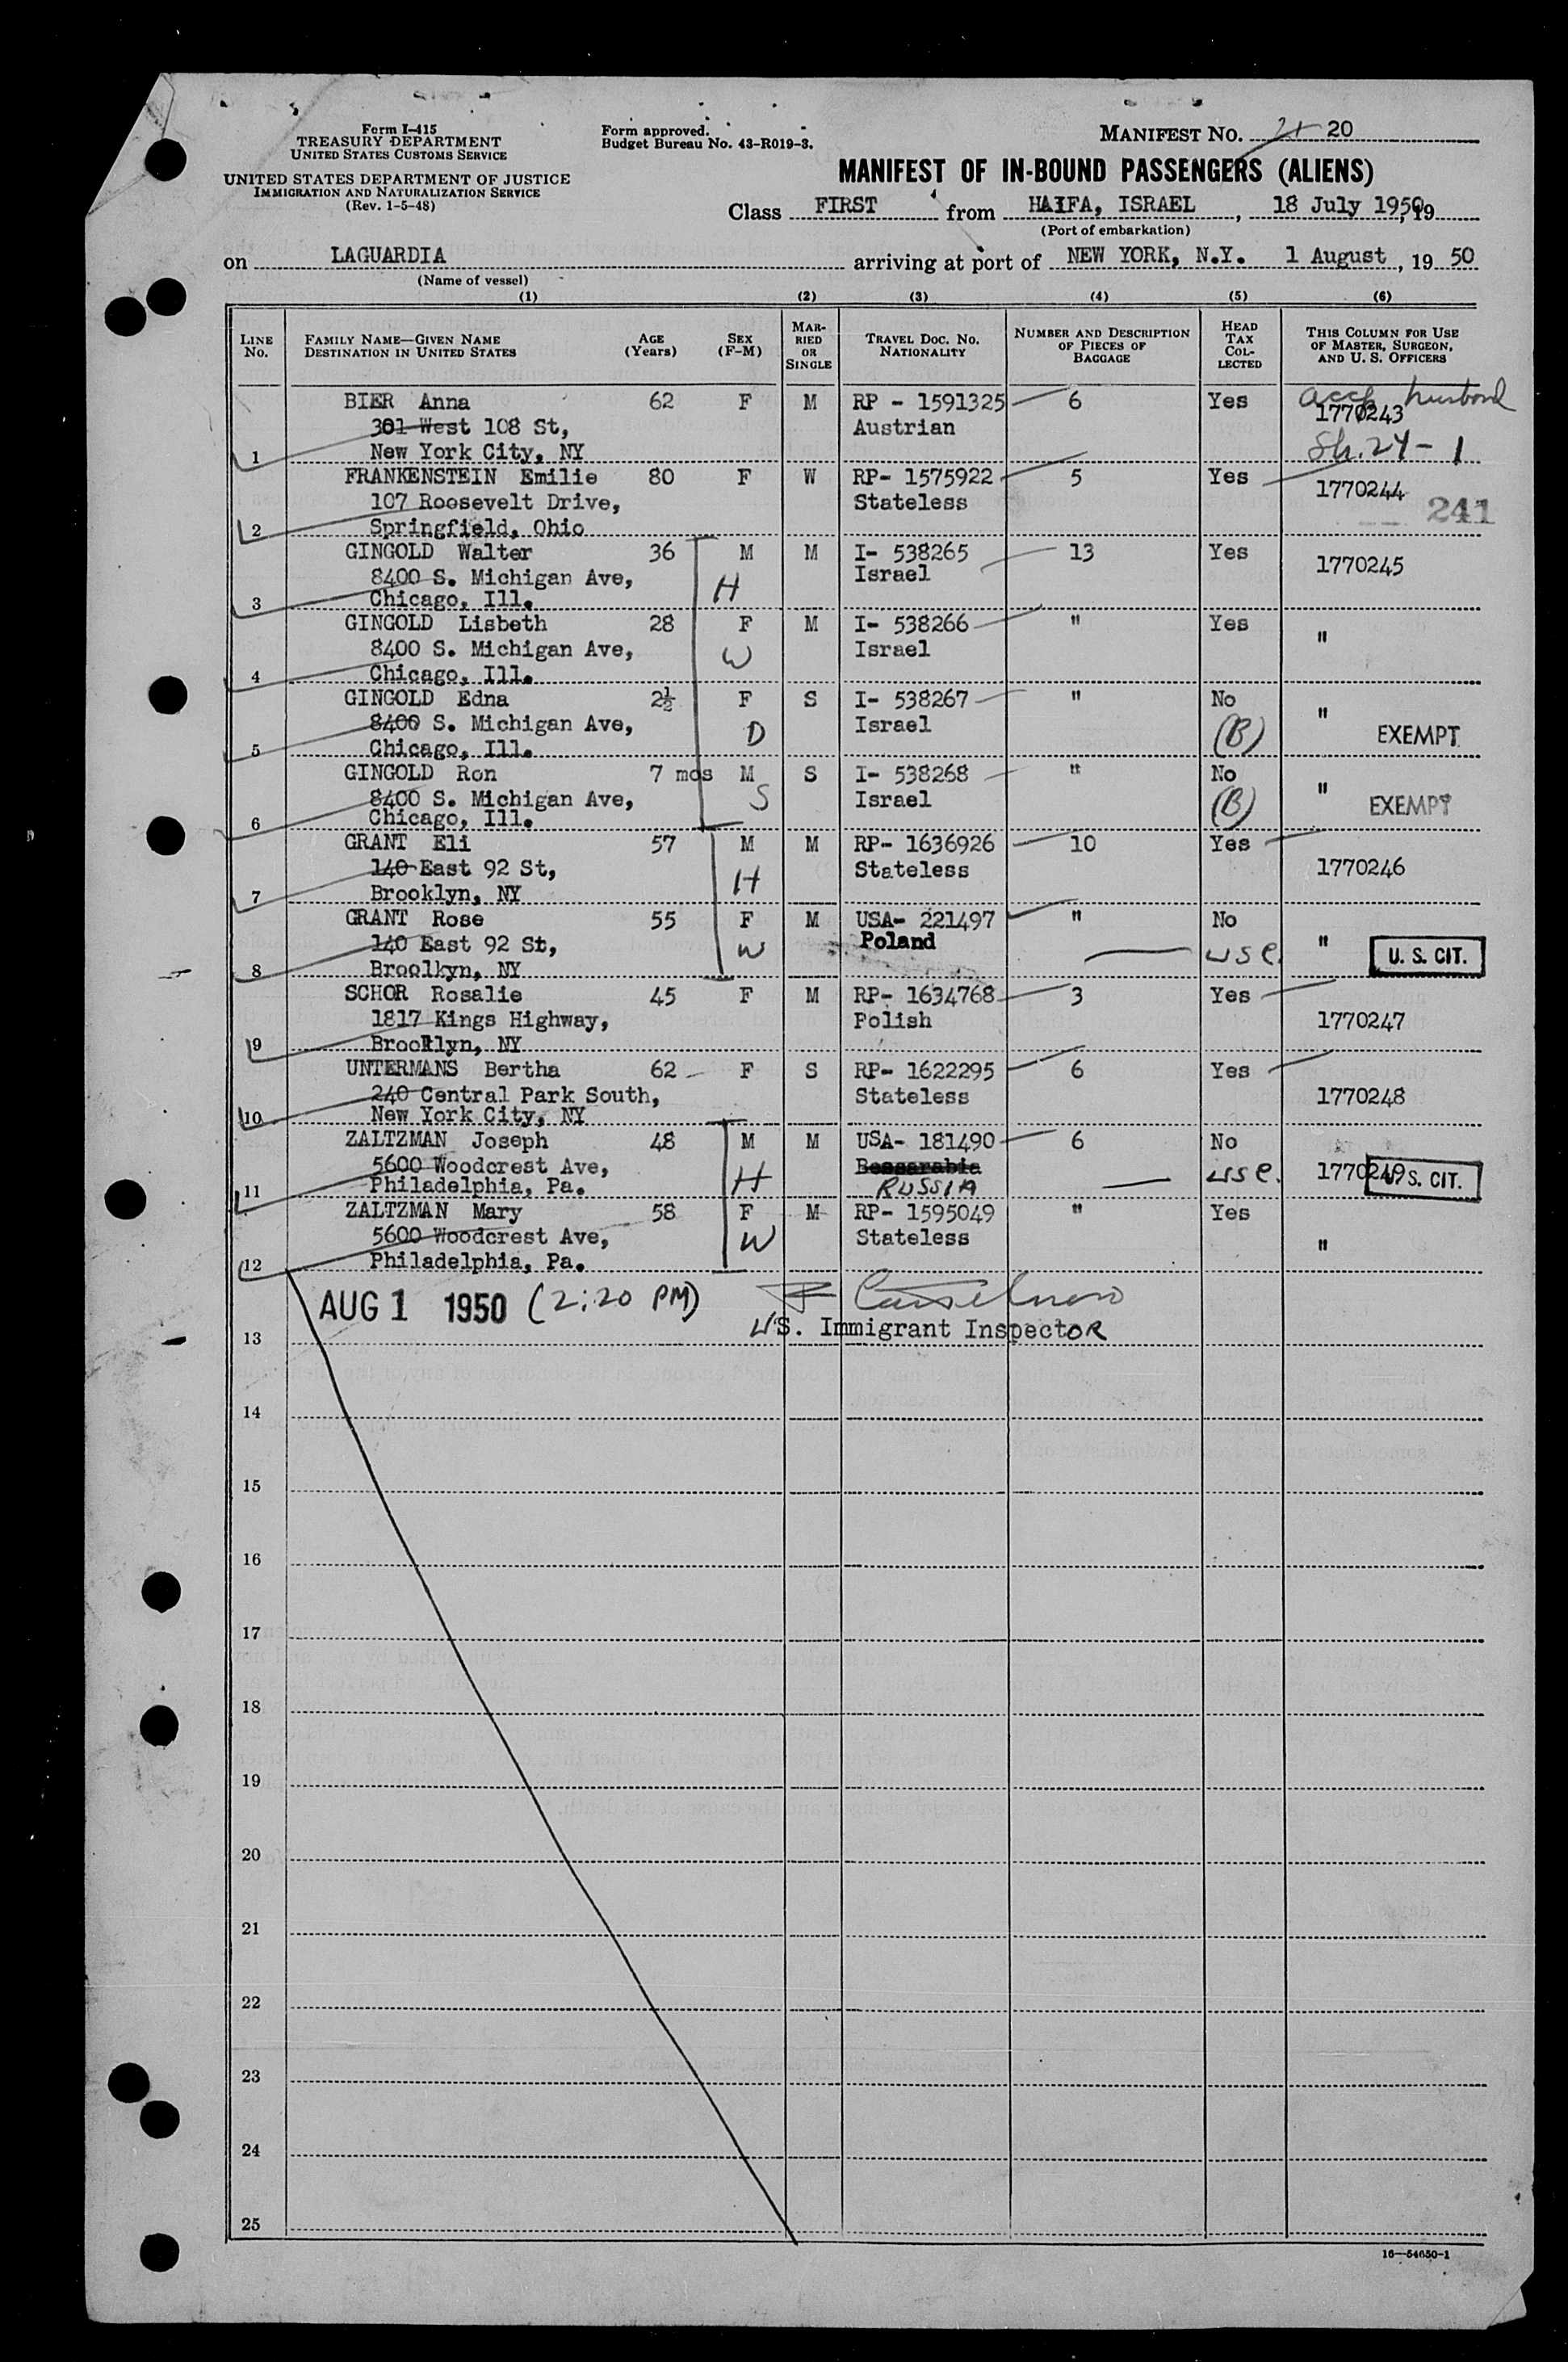 Form I-415
TREASURY DEPARTMENT
UNITED STATES CUSTOMS SERVICE
UNITED STATES DEPARTMENT OF JUSTICE
IMMIGRATION AND NATURALIZATION SERVICE
(Rev. 1-5-48)
Form approved.
Budget Bureau No. 43-R019-3.
MANIFEST NO. 21 20
MANIFEST OF IN-BOUND PASSENGERS (ALIENS)
Class FIRST from HAIFA, ISRAEL, 18 July 1950, 19
(Port of embarkation)
on LAGUARDIA arriving at port of NEW YORK, N.Y. 1 August, 19 50
(Name of vessel)
(1) (2) (3) (4) (5) (6)
LINE NO. FAMILY NAME—GIVEN NAME DESTINATION IN UNITED STATES AGE (Years) SEX (F-M) MARRIED OR SINGLE TRAVEL DOC. NO. NATIONALITY NUMBER AND DESCRIPTION OF PIECES OF BAGGAGE HEAD TAX COLLECTED THIS COLUMN FOR USE OF MASTER, SURGEON, AND U. S. OFFICERS
BIER Anna 62 F M RP - 1591325 6 Yes acc husband
301 West 108 St, Austrian 1770243
1 New York City, NY Sh. 24-1
FRANKENSTEIN Emilie 80 F W RP- 1575922 5 Yes 1770244
107 Roosevelt Drive, Stateless 241
2 Springfield, Ohio
GINGOLD Walter 36 M M I- 538265 13 Yes 1770245
8400 S. Michigan Ave, H Israel
3 Chicago, Ill.
GINGOLD Lisbeth 28 F M I- 538266 " Yes "
8400 S. Michigan Ave, W Israel
4 Chicago, Ill.
GINGOLD Edna 2½ F S I- 538267 " No "
8400 S. Michigan Ave, D Israel (B) EXEMPT
5 Chicago, Ill.
GINGOLD Ron 7 mos M S I- 538268 " No "
8400 S. Michigan Ave, S Israel (B) EXEMPT
6 Chicago, Ill.
GRANT Eli 57 M M RP- 1636926 10 Yes
140 East 92 St, H Stateless 1770246
7 Brooklyn, NY
GRANT Rose 55 F M USA- 221497 " No
140 East 92 St, W Poland USC. " U. S. CIT.
8 Broolkyn, NY
SCHOR Rosalie 45 F M RP- 1634768 3 Yes
1817 Kings Highway, Polish 1770247
9 Brooklyn, NY
UNTERMANS Bertha 62 F S RP- 1622295 6 Yes
240 Central Park South, Stateless 1770248
10 New York City, NY
ZALTZMAN Joseph 48 M M USA- 181490 6 No
5600 Woodcrest Ave, H Bessarabia USC. 1770249 U. S. CIT.
11 Philadelphia, Pa. RUSSIA
ZALTZMAN Mary 58 F M RP- 1595049 " Yes
5600 Woodcrest Ave, W Stateless "
12 Philadelphia, Pa.
AUG 1 1950 (2:20 PM)
U.S. Immigrant Inspector
13
14
15
16
17
18
19
20
21
22
23
24
25
16—54650-1